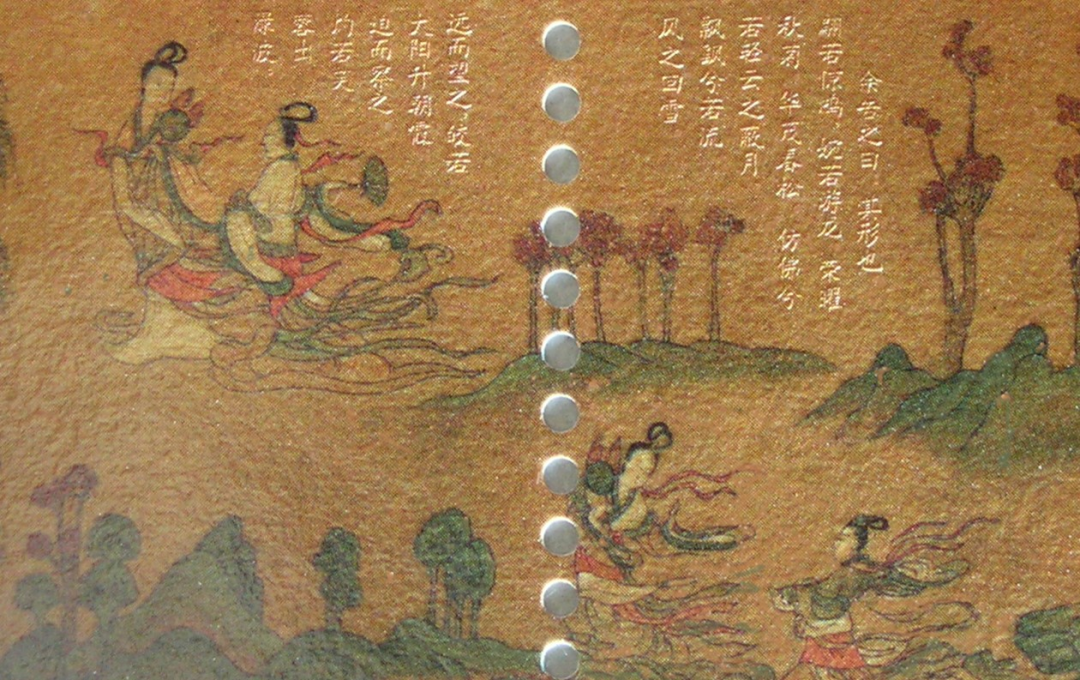 余告之曰 其形也
翩若惊鸿,婉若游龙 荣曜
秋菊 华茂春松 仿佛兮
若轻云之蔽月
飘飖兮若流
风之回雪
远而望之,皎若
太阳升朝霞
迫而察之
灼若芙
蓉出
渌波。